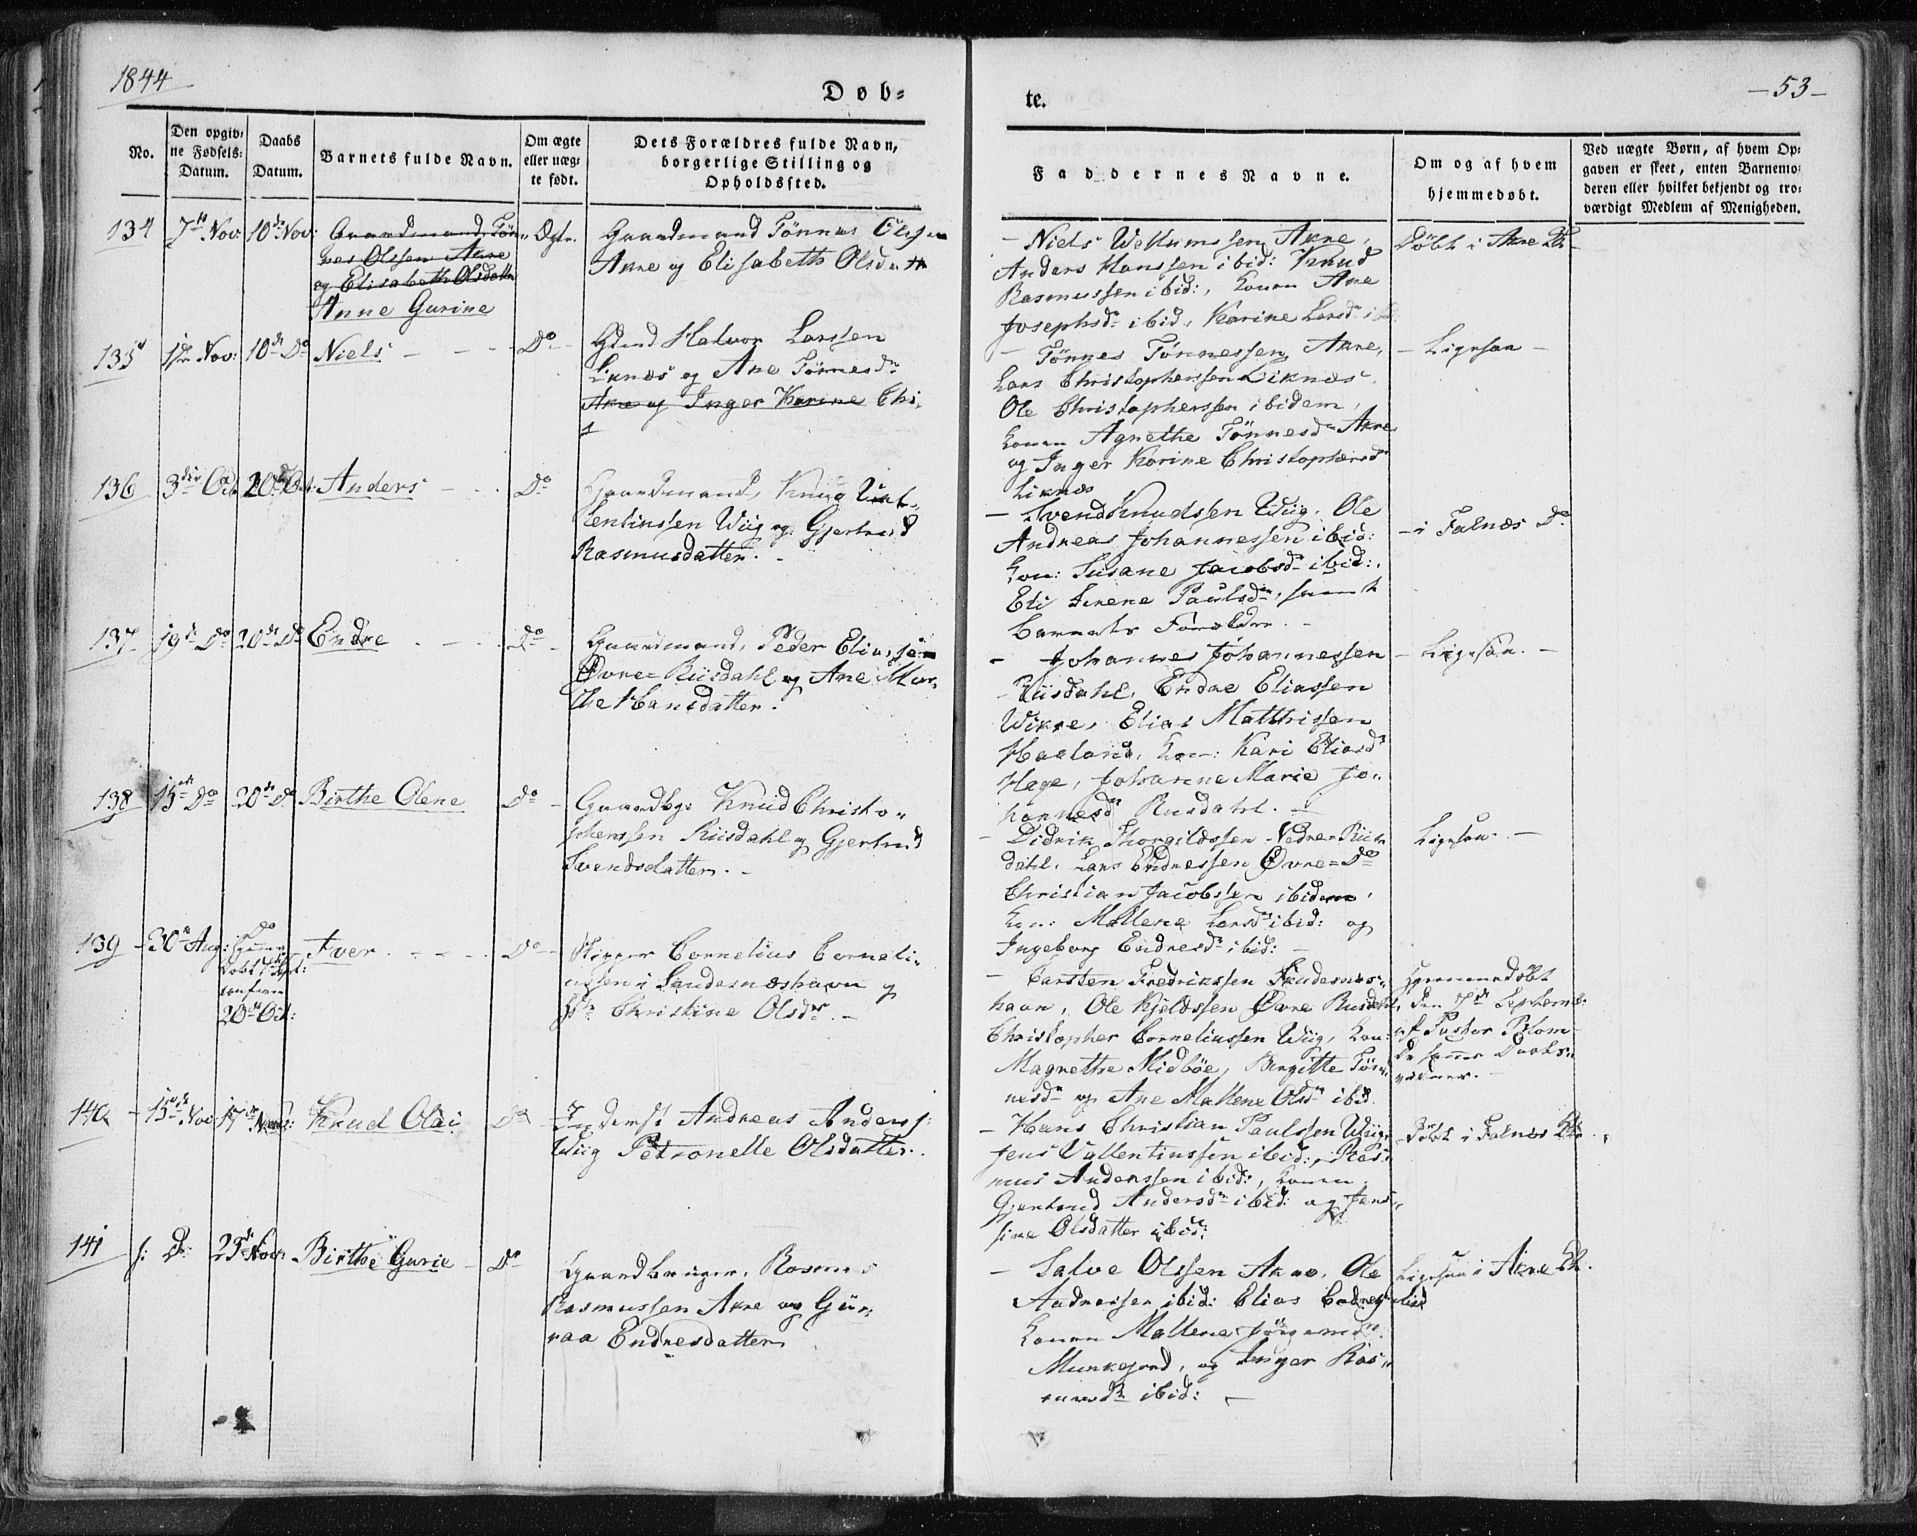 1844
Døb-
te.
-53-
No.
Den opgiv-
ne Fødsels-
Datum.
Daabs
Datum.
Barnets fulde Navn.
Om ægte
eller uæg-
te født.
Dets Forældres fulde Navn,
borgerlige Stilling og
Opholdssted.
Faddernes Navne.
Om og af hvem
hjemmedøbt.
Ved uægte Børn, af hvem Op-
gaven er skeet, enten Barnemo-
deren eller hvilket bekjendt og tro-
værdigt Medlem af Menigheden.
134
7de Nov:
10de Nov:
Gaardmand Tøn-
nes Olssen Akre
og Elisabeth Olsdatter
Anne Gurine
Ægte.
Gaardmand Tønnes Olssen
Akre og Elisabeth Olsdatt
- Niels Wellumssen Akre,
Anders Hanssen ibid: Knud
Rasmussen ibid:, Konen Ane
Josephsdr ibid, Karine Larsd
Døbt i Akre
135
1ste Nov:
10de Do
Niels
Do
Halvor Larssen
Liknæs og Ane Tønnesdr
Akre og Inger Karine Chri-
- Tønnes Tønnessen Akre,
Lars Christophersen Liknæs.
Ole Christophersen ibidem,
Konen Agnethe Tønnesdr Akre
og Inger Karine Christophersdr
Liknæs
- Ligesaa -
136
3die Oct
20de Oct:
Anders
Do
Gaardmand, Knud Val-
lentinssen Wiig og Gjertrud
Rasmusdatter. -
- Svend Knudssen Wiig. Ole
Andreas Johannessen ibid:
Kon: Susane Jacobsdr ibid:,
Eli Serene Paulsdr, samt
Barnets Forældre. -
- i Falnæs Do
137
19de Do
20de Do
Endre
Do
Gaardmand, Peder Eliassen
Øvre=Riisdahl og Ane Mar-
the Hansdatter.
- Johannes Johannessen
Riisdahl, Endre Eliassen
Wikre, Elias Matthissen
Haaland, Kon: Kari Eliasdr
Hage, Johanne Marie Jo-
hannesdr Riisdahl. -
- Ligesaa. -
138
15de Do
20de Do
Birthe Olene
Do
Gaardbr: Knud Christo-
phersen Riisdahl og Gjertrud
Svendsdatter. -
- Didrik Thorgildssen Nedre=Riis-
dahl. Lars Endressen Øvre=Do
Christian Jacobssen ibidem,
Kon: Mallene Larsdr ibid: og
Ingeborg Endresdr ibid: -
Ligesaa. -
139
30te Aug:
Do
hjemme
døbt 7 Sept:
20de Oct:
Iver
Do
Skipper Cornelius Corneli-
ussen i Skudesnæshavn og
Christine Olsdr. -
- Carsten Fredrikssen Skudesnæs-
havn, Ole Kjeldssen Øvre Riisdahl,
Christopher Corneliussen Wiig, Kon:
Magnethe Midbøe, Birgitte Tøn-
nesdr og Ane Mallene Olsdr ibid.
Hjemmedøbt
den 7de Septemb:
af Pastor Blom
140
15de Nov:
17de Nov:
Knud Olai
Do
Inderst Andreas Anderss:
Wiig Petronelle Olsdatter.
- Hans Christian Paulssen Wiig,
Jens Vallentinssen ibid:, Ras-
mus Anderssen ibid:, Konen
Gjertrud Andersdr ibid: og Jen-
sine Olsdatter ibid:
Døbt i Falnæs
141
s: D:
23de Nov:
Birthe Gurie
Do
Gaardbruger, Rasmus
Rasmussen Akre og Gu-
raa Endresdatter
- Salve Olssen Akre. Ole
Andreassen ibid: Elias Endress: ibid
Konen Mallene Jørgensdr
Munkejord, og Inger Ras-
musdr ibid: -
Ligesaa i Akre